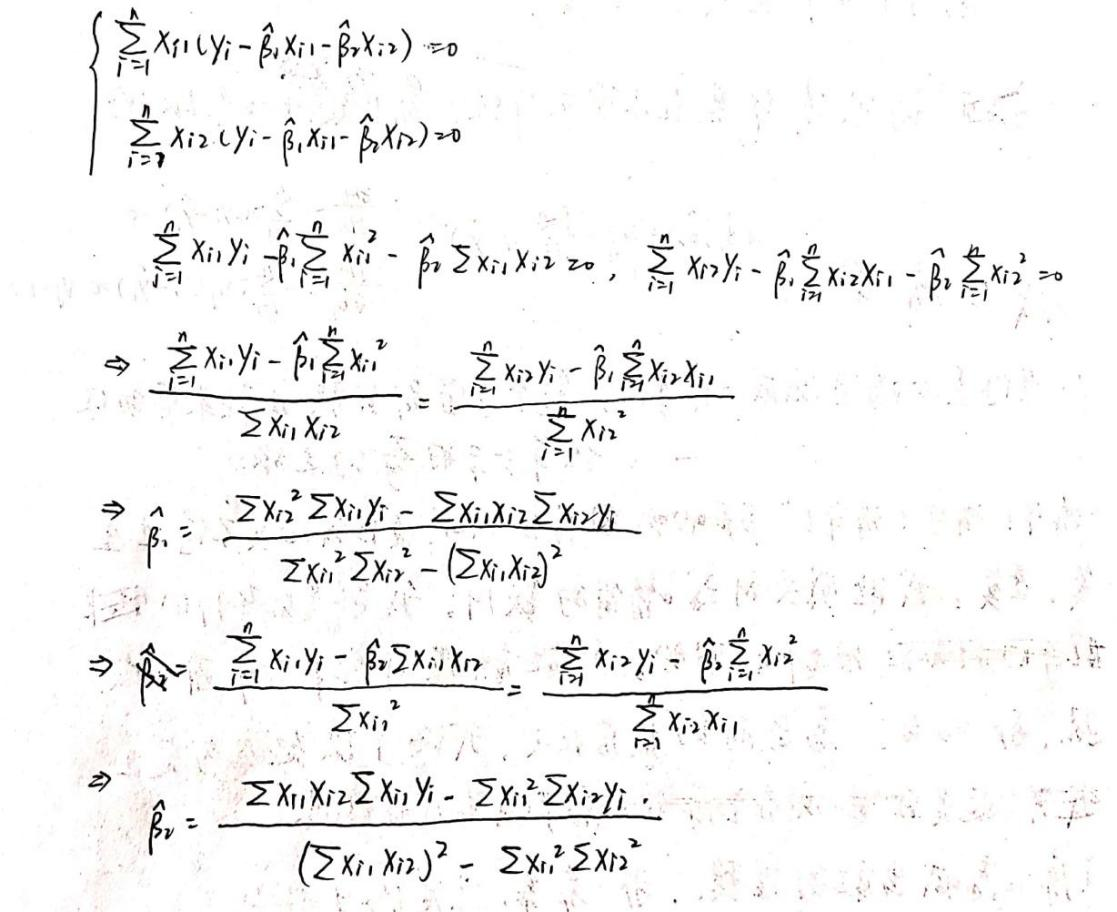 \sum_{i=1}^{n} x_{i1}(y_i - \hat{\beta}_1 x_{i1} - \hat{\beta}_2 x_{i2}) = 0
\sum_{i=1}^{n} x_{i2}(y_i - \hat{\beta}_1 x_{i1} - \hat{\beta}_2 x_{i2}) = 0
\sum_{i=1}^{n} x_{i1} y_i - \hat{\beta}_1 \sum_{i=1}^{n} x_{i1}^2 - \hat{\beta}_2 \sum x_{i1} x_{i2} = 0, \sum_{i=1}^{n} x_{i2} y_i - \hat{\beta}_1 \sum_{i=1}^{n} x_{i2} x_{i1} - \hat{\beta}_2 \sum_{i=1}^{n} x_{i2}^2 = 0
\Rightarrow \frac{\sum_{i=1}^{n} x_{i1} y_i - \hat{\beta}_1 \sum_{i=1}^{n} x_{i1}^2}{\sum x_{i1} x_{i2}} = \frac{\sum_{i=1}^{n} x_{i2} y_i - \hat{\beta}_1 \sum_{i=1}^{n} x_{i2} x_{i1}}{\sum_{i=1}^{n} x_{i2}^2}
\Rightarrow \hat{\beta}_1 = \frac{\sum x_{i2}^2 \sum x_{i1} y_i - \sum x_{i1} x_{i2} \sum x_{i2} y_i}{\sum x_{i1}^2 \sum x_{i2}^2 - (\sum x_{i1} x_{i2})^2}
\Rightarrow \frac{\sum_{i=1}^{n} x_{i1} y_i - \hat{\beta}_2 \sum x_{i1} x_{i2}}{\sum x_{i1}^2} = \frac{\sum_{i=1}^{n} x_{i2} y_i - \hat{\beta}_2 \sum_{i=1}^{n} x_{i2}^2}{\sum_{i=1}^{n} x_{i2} x_{i1}}
\Rightarrow \hat{\beta}_2 = \frac{\sum x_{i1} x_{i2} \sum x_{i1} y_i - \sum x_{i1}^2 \sum x_{i2} y_i}{(\sum x_{i1} x_{i2})^2 - \sum x_{i1}^2 \sum x_{i2}^2}